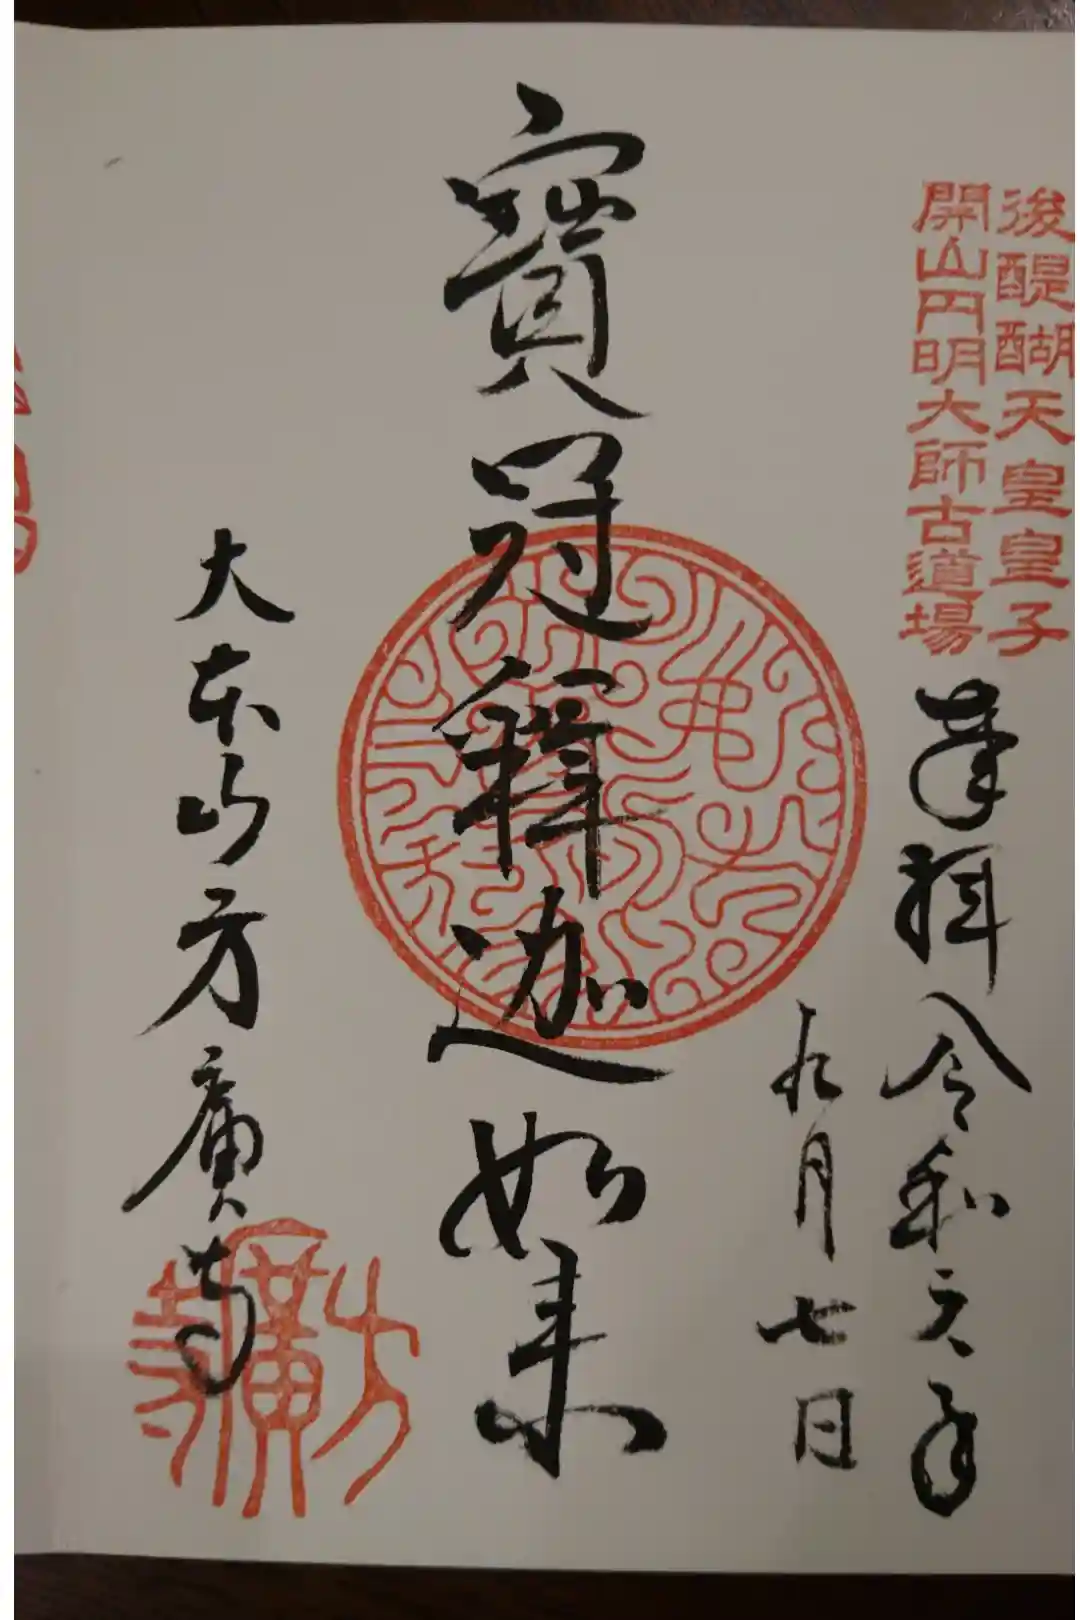 後醍醐天皇皇子
開山円明大師古道場
奉拝 令和六年
九月七日
寶冠釋迦如来
大本山方廣寺
方廣寺